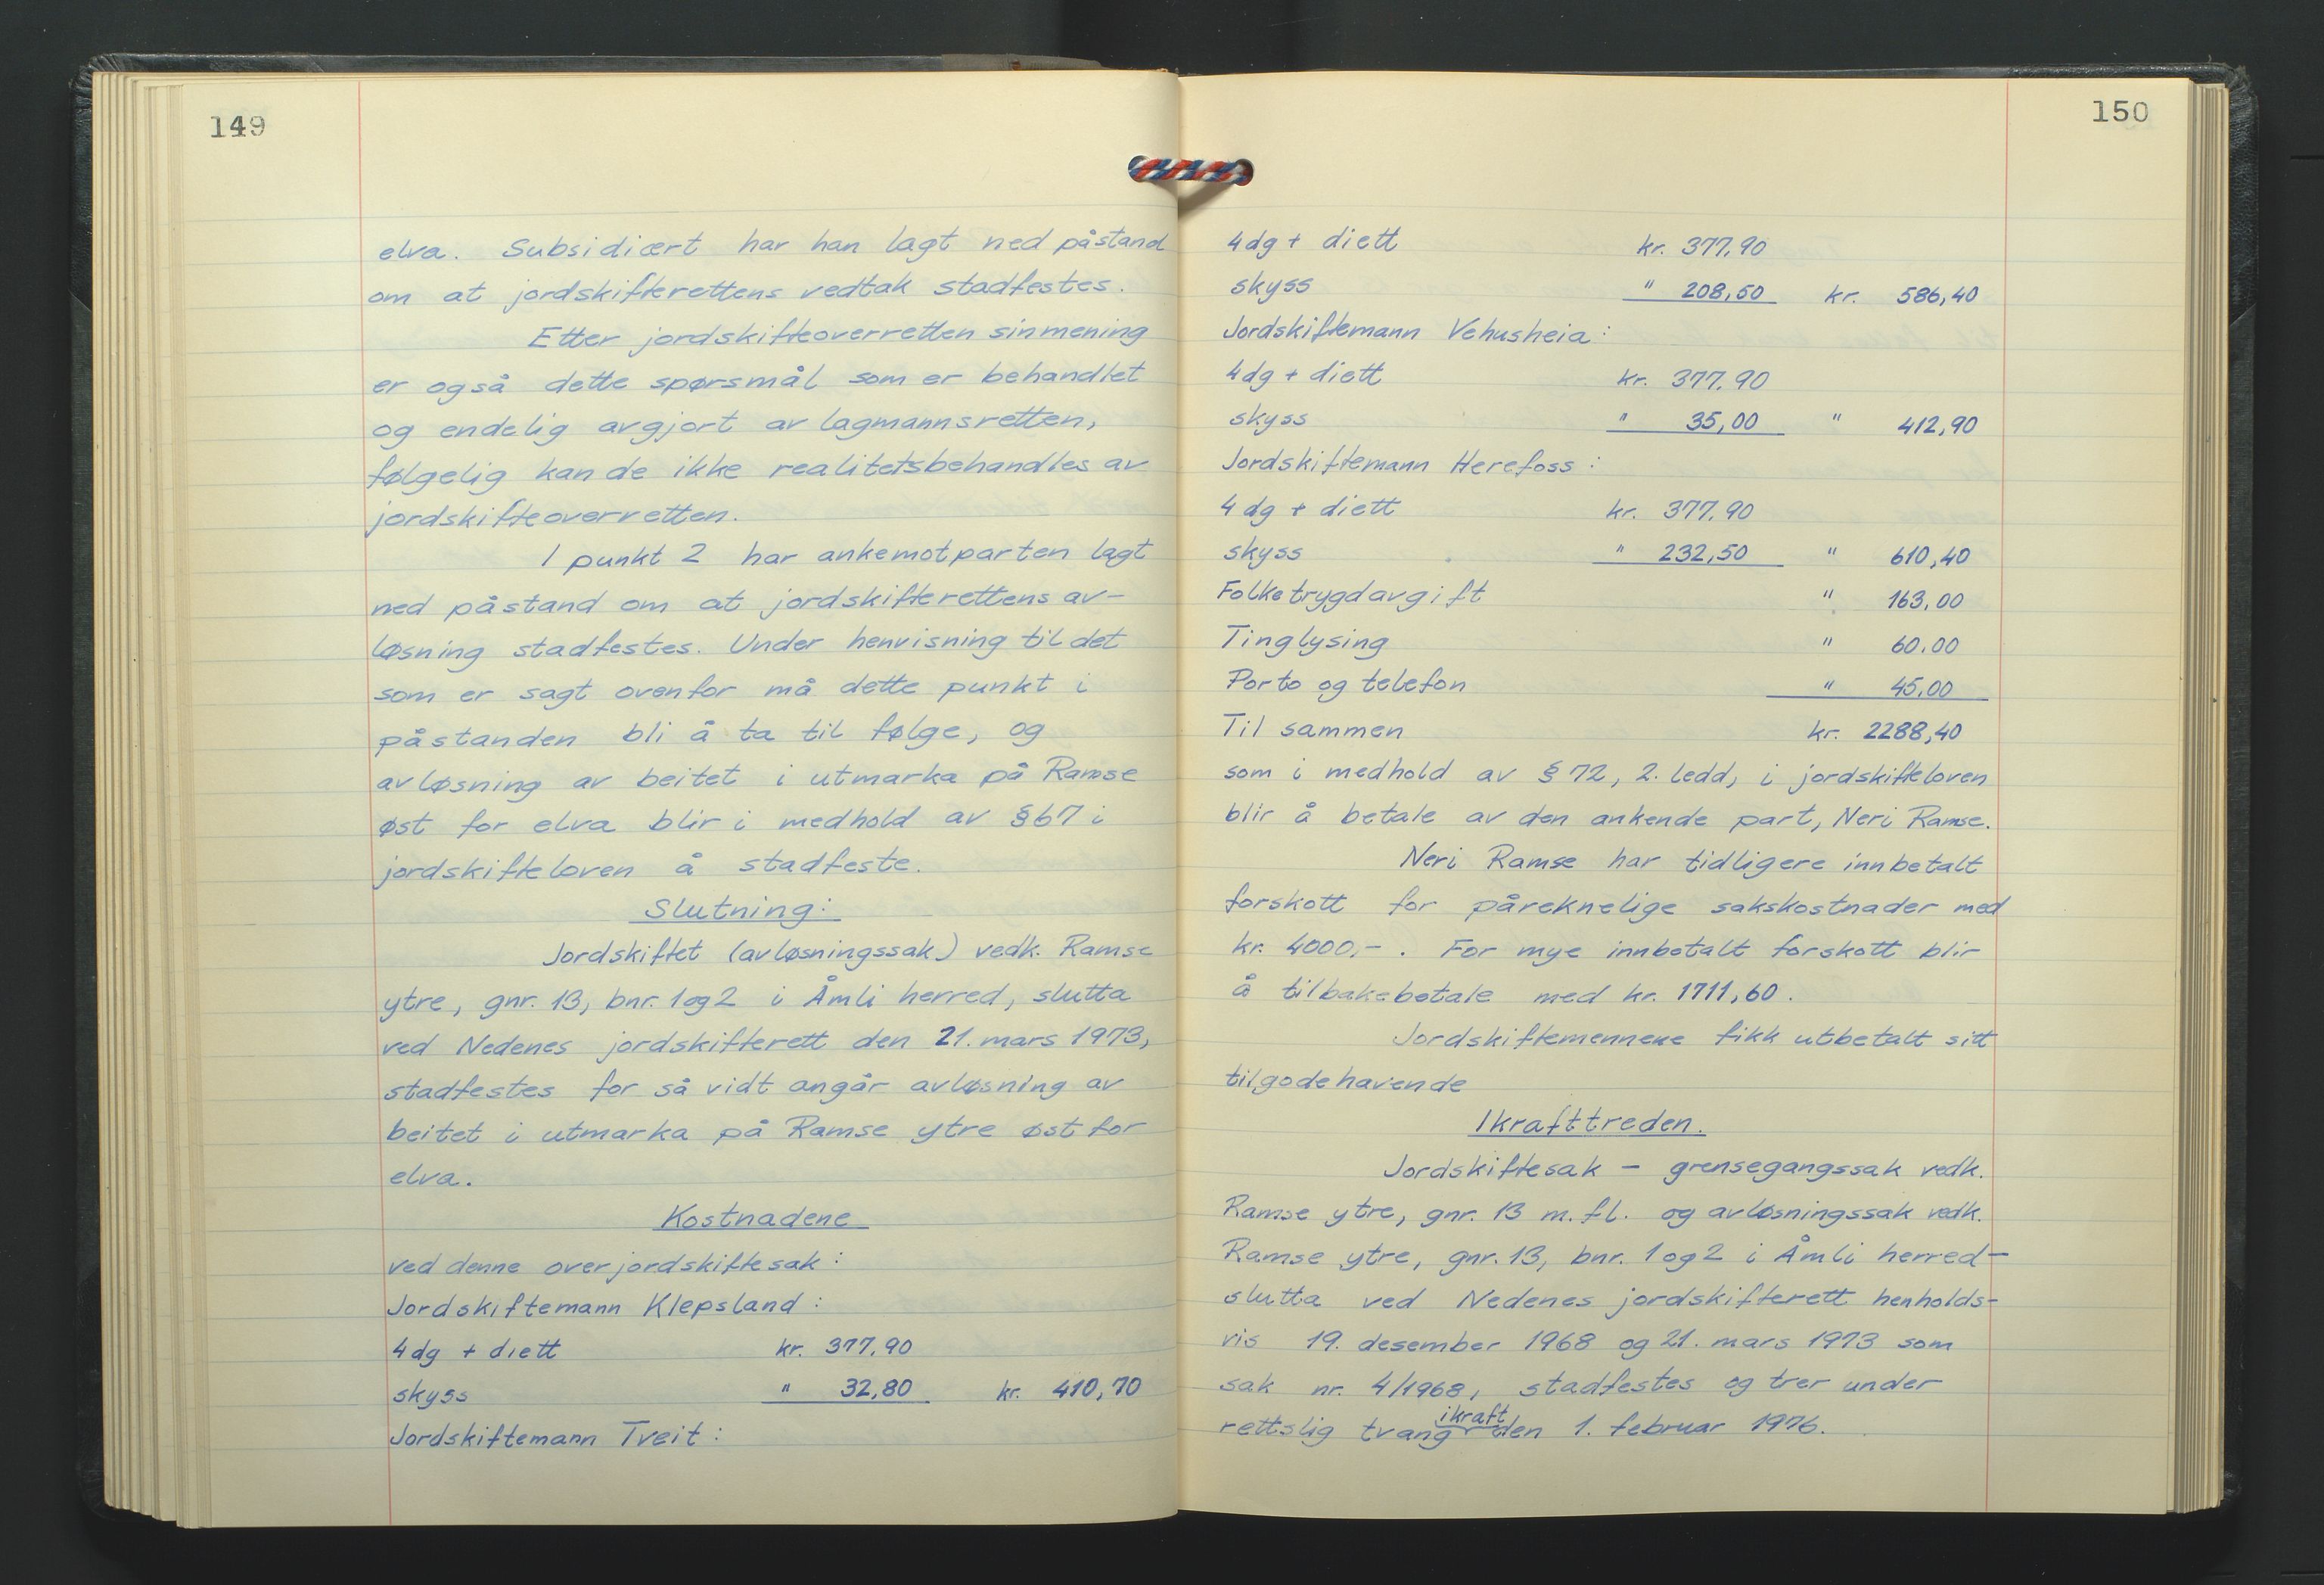 149
elva. Subsidiært har han lagt ned påstand
om at jordskifterettens vedtak stadfestes.
Etter jordskifteoverretten sin mening
er også dette spørsmål som er behandlet
og endelig avgjort av lagmannsretten,
følgelig kan de ikke realitetsbehandles av
jordskifteoverretten.
I punkt 2 har ankemotparten lagt
ned påstand om at jordskifterettens av-
løsning stadfestes. Under henvisning til det
som er sagt ovenfor må dette punkt i
påstanden bli å ta til følge, og
avløsning av beitet i utmarka på Ramse
øst for elva blir i medhold av § 67 i
jordskifteloven å stadfeste.
Slutning:
Jordskiftet (avløsningssak) vedk. Ramse
ytre, gnr. 13, bnr. 1 og 2 i Åmli herred, slutta
ved Nedenes jordskifterett den 21. mars 1973,
stadfestes for så vidt angår avløsning av
beitet i utmarka på Ramse ytre øst for
elva.
Kostnadene
ved denne overjordskiftesak:
Jordskiftemann Klepsland:
4 dg + diett kr. 377.90
skyss " 32,80 kr. 410,70
Jordskiftemann Tveit:
150
4 dg + diett kr. 377.90
skyss " 208,50 kr. 586,40
Jordskiftemann Vehusheia:
4 dg + diett kr. 377.90
skyss " 35,00 " 412,90
Jordskiftemann Herefoss:
4 dg + diett kr. 377.90
skyss " 232,50 " 610,40
Folketrygdavgift " 163.00
Tinglysing " 60.00
Porto og telefon " 45.00
Til sammen kr. 2288,40
som i medhold av § 72, 2. ledd, i jordskifteloven
blir å betale av den ankende part, Neri Ramse.
Neri Ramse har tidligere innbetalt
forskott for påreknelige sakskostnader med
kr. 4000,- . For mye innbetalt forskott blir
å tilbakebetale med kr. 1711,60.
Jordskiftemennene fikk utbetalt sitt
tilgodehavende
Ikrafttreden.
Jordskiftesak - grensegangssak vedk.
Ramse ytre, gnr. 13 m.fl. og avløsningssak vedk.
Ramse ytre, gnr. 13, bnr. 1 og 2 i Åmli herred-
slutta ved Nedenes jordskifterett henholds-
vis 19. desember 1968 og 21. mars 1973 som
sak nr. 4/1968, stadfestes og trer under
rettslig tvang ikraft den 1. februar 1976.